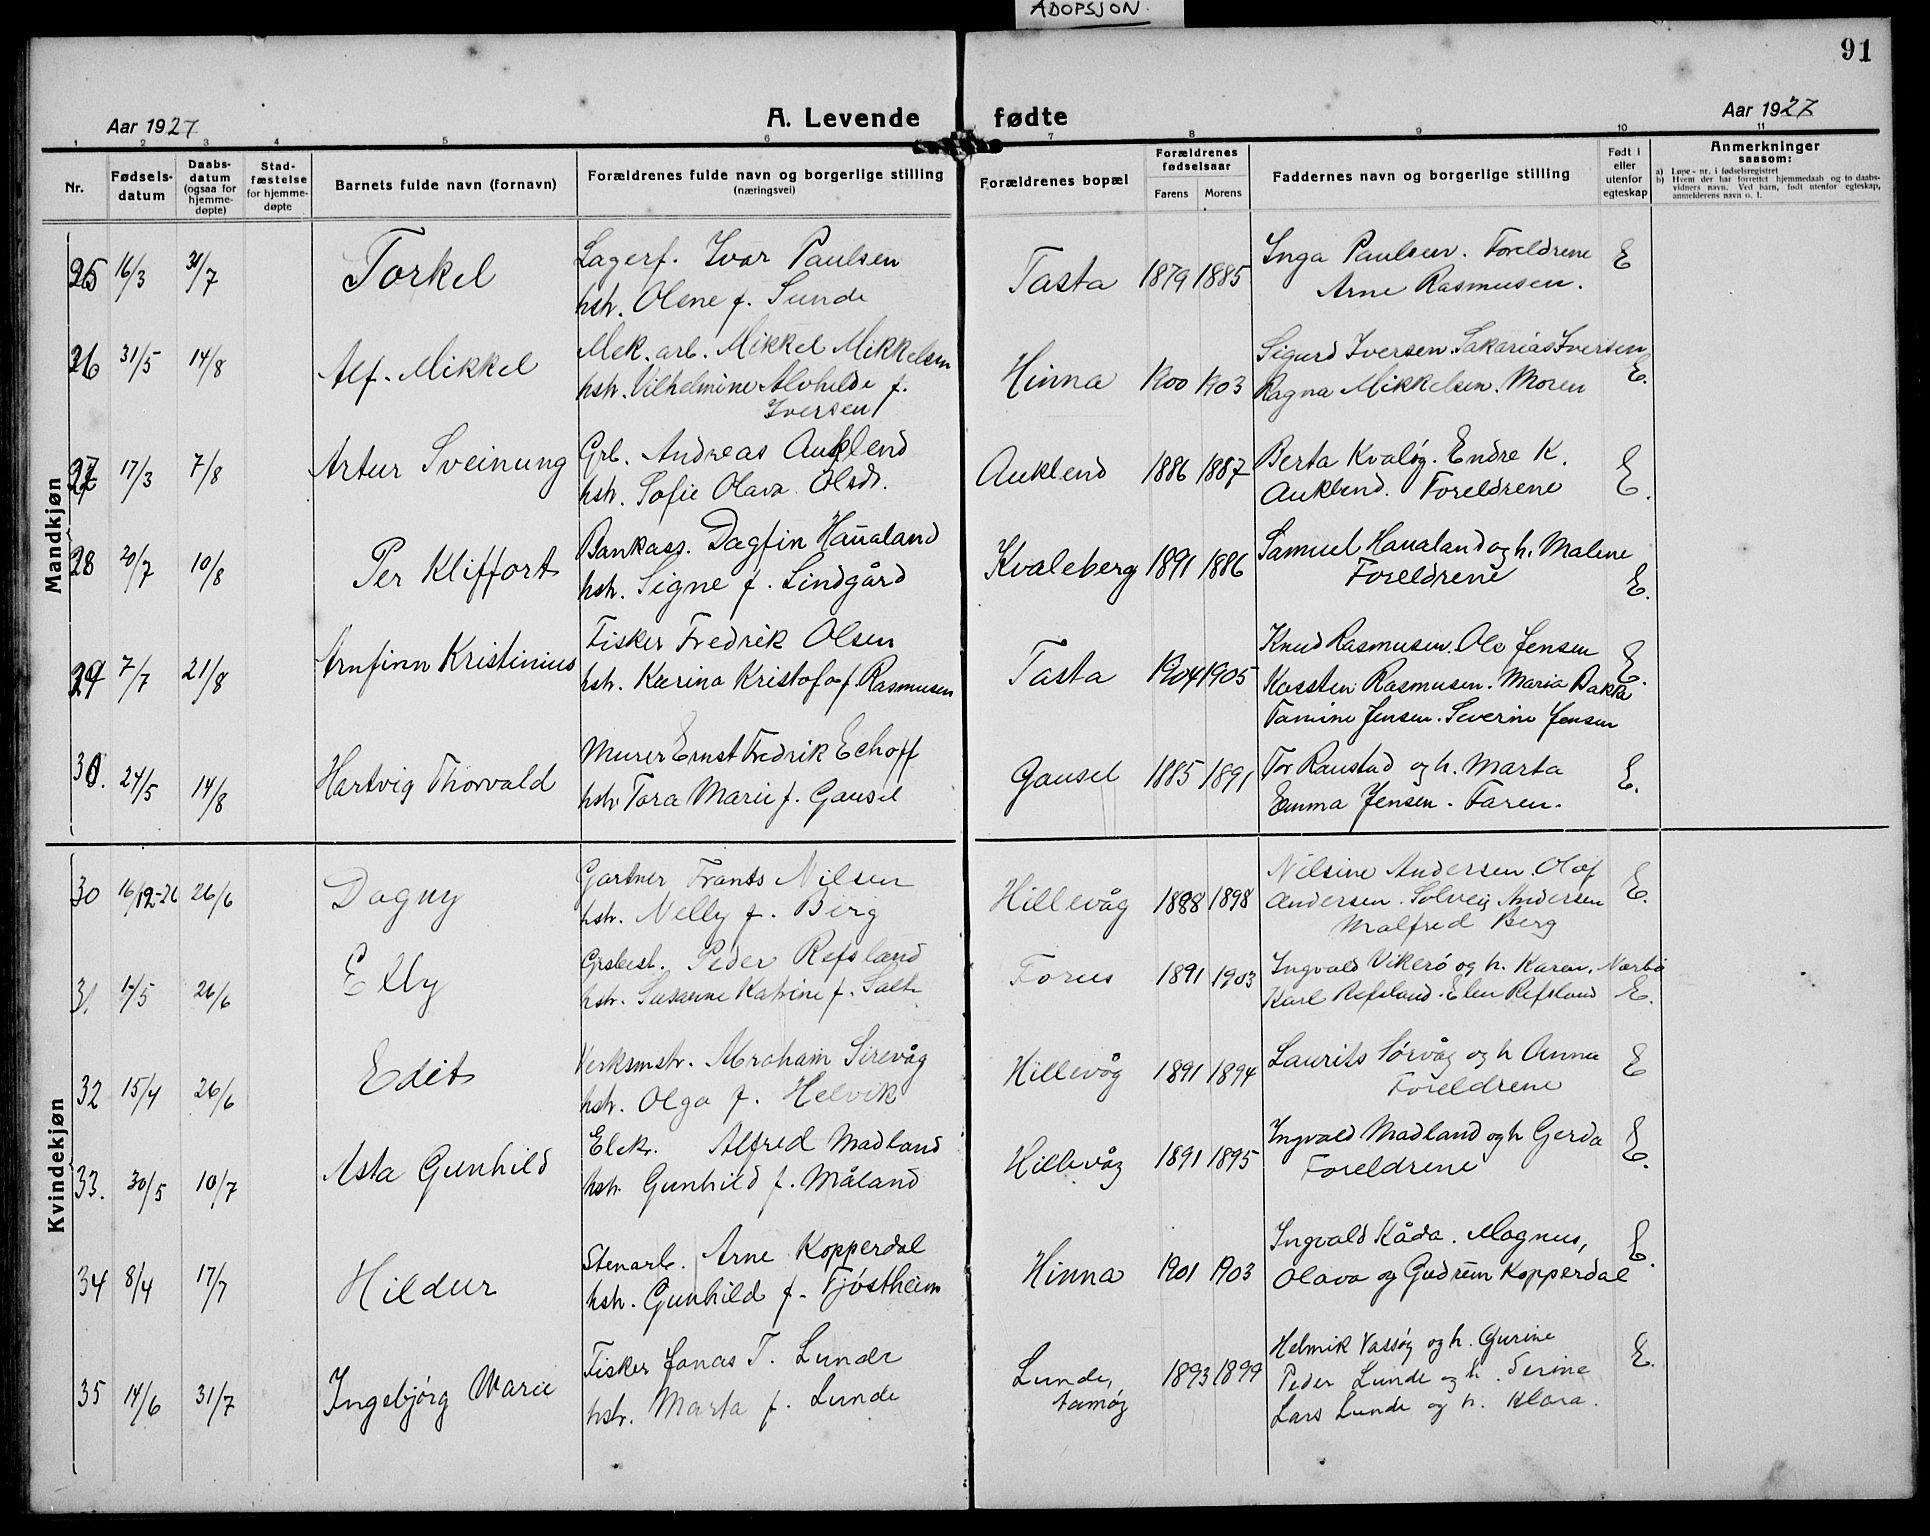 ADOPSJON.
91
Aar 1927
A. Levende fødte
Aar 1927
1 2 3 4 5 6 7 8 9 10 11
Nr.
Fødsels-
datum
Daabs-
datum
(ogsaa for
hjemme-
døpte)
Stad-
fæstelse
for hjemme-
døpte
Barnets fulde navn (fornavn)
Forældrenes fulde navn og borgerlige stilling
(næringsvei)
Forældrenes bopæl
Forældrenes
fødselsaar
Farens Morens
Faddernes navn og borgerlige stilling
Født i
eller
utenfor
egteskap
Anmerkninger
saasom:
a) Løpe-nr. i fødselsregistret
b) Hvem der har forrettet hjemmedaab og to daabs-
vidners navn. Ved barn, født utenfor egteskap,
anmelderens navn o. l.
Mandkjøn
25 16/3 31/7 Torkel
Lagerf. Ivar Paulsen
hstr. Olene f. Sunde
Tasta 1879 1885
Inga Paulsen. Foreldrene
Arne Rasmusen.
E
26 31/5 14/8 Alf. Mikkel
Mek. arb. Mikkel Mikkelsen
hstr. Vilhelmine Alvhilde f.
Iversen
Hinna 1900 1903
Sigurd Iversen. Sakarias Iversen
Ragna Mikkelsen. Moren
E.
27 17/3 7/8 Artur Sveinung
Grb. Andreas Auklend
hstr. Sofie Olava Olsdr.
Auklend 1886 1887
Berta Kvaløy. Endre K.
Auklend. Foreldrene
E.
28 20/7 10/8 Per Kliffort
Bankass. Dagfin Haualand
hstr. Signe f. Lindgård
Kvaleberg 1891 1886
Samuel Haualand og h. Malene
Foreldrene
E.
29 7/7 21/8 Arnfinn Kristinius
Fisker Fredrik Olsen
hstr. Karina Kristofa f. Rasmusen
Tasta 1904 1905
Knud Rasmusen. Ole Jensen
Karsten Rasmusen. Maria Bakka
Tomine Jensen. Severine Jensen
E.
30. 24/5 14/8 Hartvig Thorvald
Murer Ernst Fredrik Echoff
hstr Tora Marie f. Gausel
Gausel 1885 1891
Tor Raustad og h. Marta
Emma Jensen. Faren.
E.
Kvindekjøn
30 16/12-26 26/6 Dagny
Gartner Frants Nilsen
hstr. Nelly f. Berg
Hillevåg 1898 1898
Nilsine Andersen. Olaf
Andersen. Solveig Andersen
Malfred Berg
E.
31. 1/5 26/6 Elly
Grsbest. Peder Refsland
hstr. Susanne Katrine f. Salte
Forus 1891 1903
Ingvald Vikerø og h. Karen. Nærbø
Karl Refsland. Elen Refsland
E.
32 15/4 26/6 Edit
Verksmstr. Abraham Sirevåg
hstr. Olga f. Helvik
Hillevåg 1891 1894
Laurits Sørvåg og h Anna
Foreldrene
E
33. 30/5 10/7 Asta Gunhild
Elekr. Alfred Madland
hstr. Gunhild f. Måland
Hillevåg 1891 1895
Ingvald Madland og h Gerda
Foreldrene
E.
34 8/4 17/7 Hildur
Stenarb. Arne Kopperdal
hstr. Gunhild f. Tjøstheim
Hinna 1901 1903
Ingvald Kåda. Magnus,
Olava og Gudrun Kopperdal
E.
35 14/6 31/7 Ingebjørg Marie
Fisker Jonas T. Lunde
hstr. Marta f. Lunde
Lunde,
1893 1899
Helmik Vassøy og h. Gurine
Peder Lunde og h. Serine
Lars Lunde og h. Klara.
E.